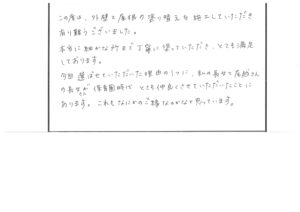 この度は、外壁と屋根の塗り替えを施工していただき
有り難うございました。
本当に細かな所まで丁寧に塗っていただき、とても満足
しております。
今回選ばせていただいた理由の1つに、私の長女と
の長女さんが保育園時代とても仲良くさせていただいたことに
あります。これもなにかのご縁なのかなと思っています。